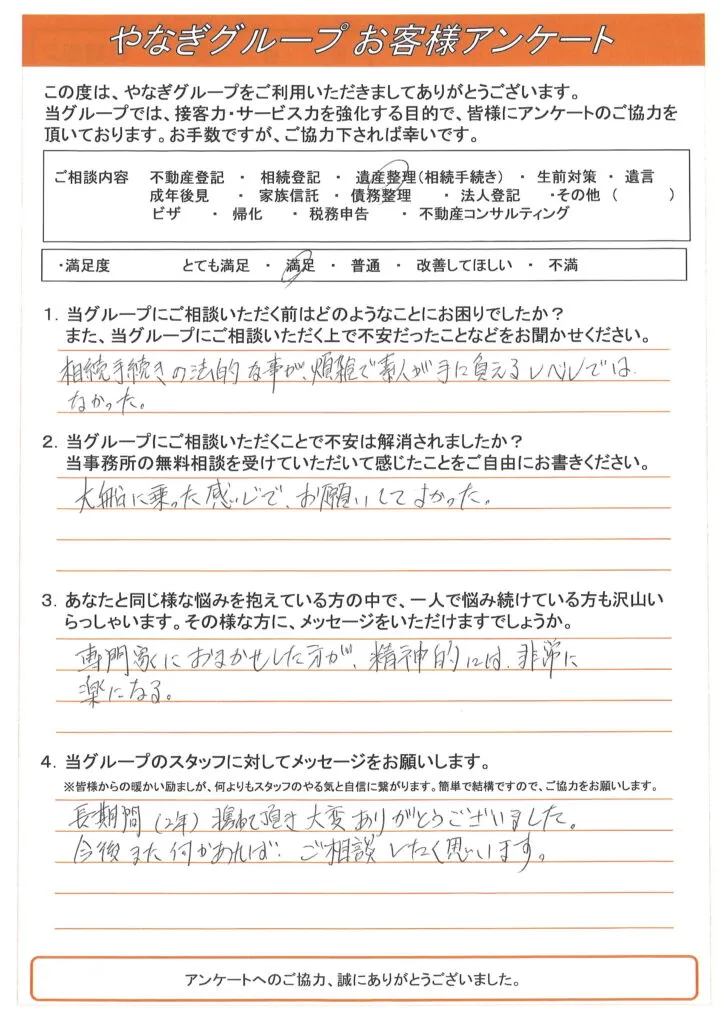 やなぎグループ お客様アンケート
この度は、やなぎグループをご利用いただきましてありがとうございます。
当グループでは、接客力・サービス力を強化する目的で、皆様にアンケートのご協力を
頂いております。お手数ですが、ご協力下されば幸いです。
ご相談内容 不動産登記 ・ 相続登記 ・ 遺産整理(相続手続き) ・ 生前対策 ・ 遺言
成年後見 ・ 家族信託 ・ 債務整理 ・ 法人登記 ・その他 ( )
ビザ ・ 帰化 ・ 税務申告 ・ 不動産コンサルティング
・満足度 とても満足 ・ 満足 ・ 普通 ・ 改善してほしい ・ 不満
1. 当グループにご相談いただく前はどのようなことにお困りでしたか?
また、当グループにご相談いただく上で不安だったことなどをお聞かせください。
相続手続きの法的な事が、煩雑で素人が手に負えるレベルでは
なかった。
2. 当グループにご相談いただくことで不安は解消されましたか?
当事務所の無料相談を受けていただいて感じたことをご自由にお書きください。
大船に乗った感じで、お願いしてよかった。
3. あなたと同じ様な悩みを抱えている方の中で、一人で悩み続けている方も沢山い
らっしゃいます。その様な方に、メッセージをいただけますでしょうか。
専門家におまかせした方が、精神的には、非常に
楽になる。
4. 当グループのスタッフに対してメッセージをお願いします。
※皆様からの暖かい励ましが、何よりもスタッフのやる気と自信に繋がります。簡単で結構ですので、ご協力をお願いします。
長期間(2年) 頂き 大変ありがとうございました。
今後また何かあれば、ご相談したく思います。
アンケートへのご協力、誠にありがとうございました。